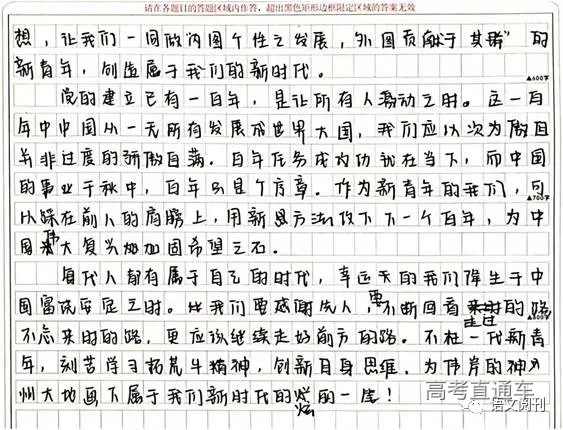 请在各题目的答题区域内作答，超出黑色矩形边框限定区域的答案无效
想，让我们一同做"内图个性之发展，外图贡献于其群"的
新青年，创造属于我们的新时代。
▲600字
党的建立已有一百年，是让所有人激动之时。这一百
年中中国从一无所有发展成世界大国，我们应以次为傲但
并非过度的骄傲自满。百年任务成功就在当下，而中国
的事业千秋中，百年只是个序章。作为新青年的我们，可
▲700字
以踩在前人的肩膀上，用新思方法攻下下一个百年，为中
国伟大复兴添加固希望之石。
每代人都有属于自己的时代，幸运的我们降生于中
国富强安定之时。我们要感谢先人，要不断回看走过的路
▲800字
不忘来时的路，更应该继续走好前方的路。不枉一代新青
年，刻苦学习拓荒牛精神，创新自身思维，为伟岸的神
州大地画下属于我们新时代的炫烂的一笔！
高考直通车
语文阅刊